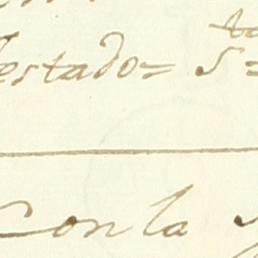 estado= S
Con la